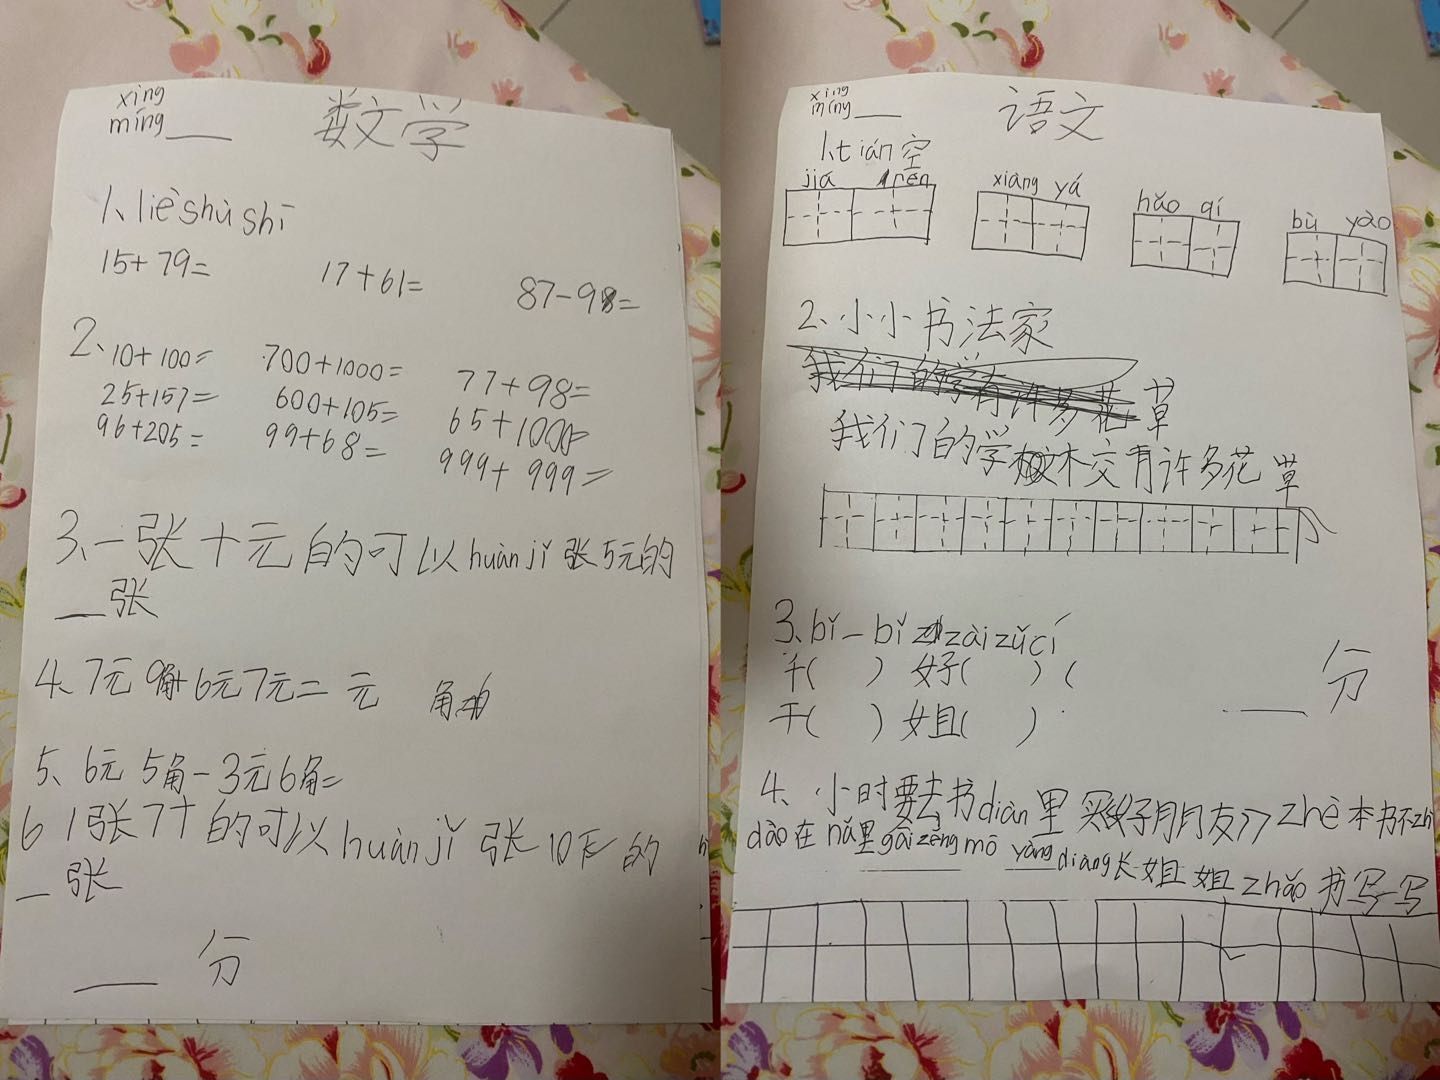 xìng
míng___ 数文学
1、liè shù shì
15+79= 17+61= 87-98=
2、10+100= 700+1000= 77+98=
25+157= 600+105= 65+1000=
96+205= 99+68= 999+999=
3、一张十元的可以huàn jǐ张5元的
__张
4、7元9角+6元7元= 元 角
5、6元5角-3元6角=
6 1张7十的可以huàn jǐ张10元的
_张
___分
xìng
míng___ 语文
1、tián空
jiā rén xiàng yá hǎo qí bù yào
2、小小书法家
我们的学有许多花草
我们的学校有许多花草
3、bǐ一bǐ zài zǔ cí
千( ) 好( ) (
干( ) 姐( )
___分
4、小时要去书diàn里买《好朋友》zhè本书不zhī
dào在nǎ里gāi zěng mō yàng diàng长姐姐zhǎo书写一写